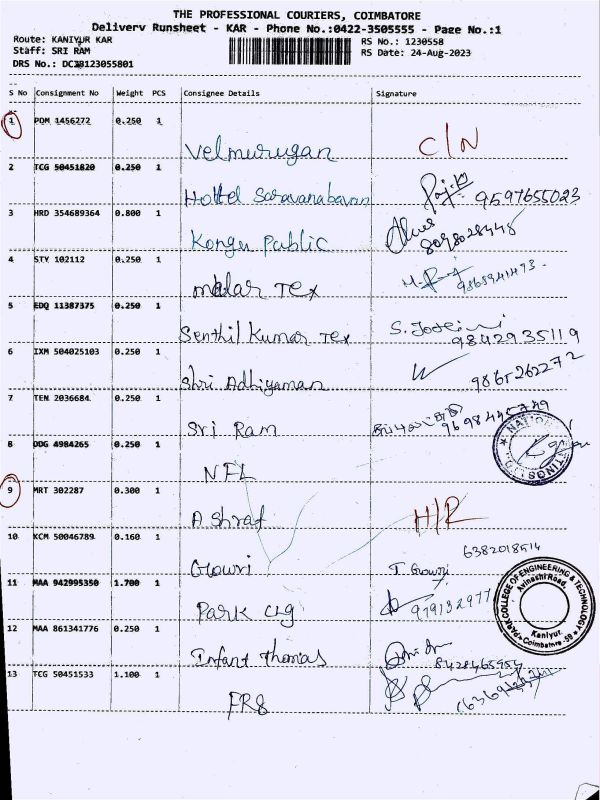 THE PROFESSIONAL COURIERS, COIMBATORE
Delivery Runsheet - KAR - Phone No.:0422-3505555 - Page No.:1
Route: KANIYUR KAR RS No.: 1230558
Staff: SRI RAM RS Date: 24-Aug-2023
DRS No.:
S No Consignment No Weight PCS Consignee Details Signature
1 PDM 1456272 0.250 1
Velmurugan C/N
2 TCG 50451820 0.250 1
Hottel Saravanabavan 9597655023
3 HRD 354689364 0.800 1
Kongu Public
4 STY 102112 0.250 1
malar Tex
5 EDQ 11387375 0.250 1
Senthil Kumar Tex 9842935119
6 IXM 504025103 0.250 1
Shri Adhiyaman 9865262272
7 TEN 2036684 0.250 1
Sri Ram
8 DDG 4984265 0.250 1
NFL
9 MRT 302287 0.300 1
Ashraf H/R
10 KCM 50046789 0.160 1
6382018514
Gowri T. Gowri
11 MAA 942995350 1.700 1
Park clg
PARK COLLEGE OF ENGINEERING & TECHNOLOGY
Avinashi Road,
Kaniyur
Coimbatore -59
12 MAA 861341776 0.250 1
Infant Thomas 8428465954
13 TCG 50451533 1.100 1
FR8